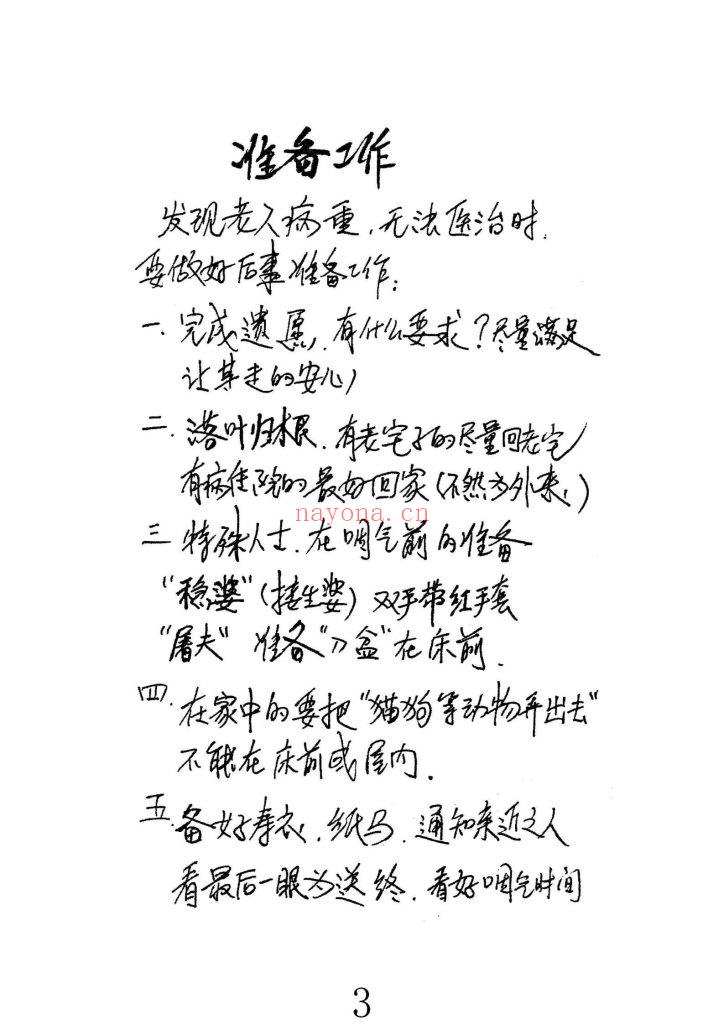 准备工作
发现老人病重，无法医治时，
要做好后事准备工作：
一、完成遗愿，有什么要求？尽量满足
让其走的安心）
二、落叶归根，有老宅子的尽量回老宅
有病住院的最好回家（不然为外来！）
nayona.cn
三、特殊人士，在咽气前的准备
“稳婆”（接生婆）双手带红手套
“屠夫”准备“刀盆”在床前．
四、在家中的要把“猫狗等动物弄出去”
不能在床前或屋内．
五、备好寿衣、纸马、通知亲近之人
看最后一眼为送终．看好咽气时间
3